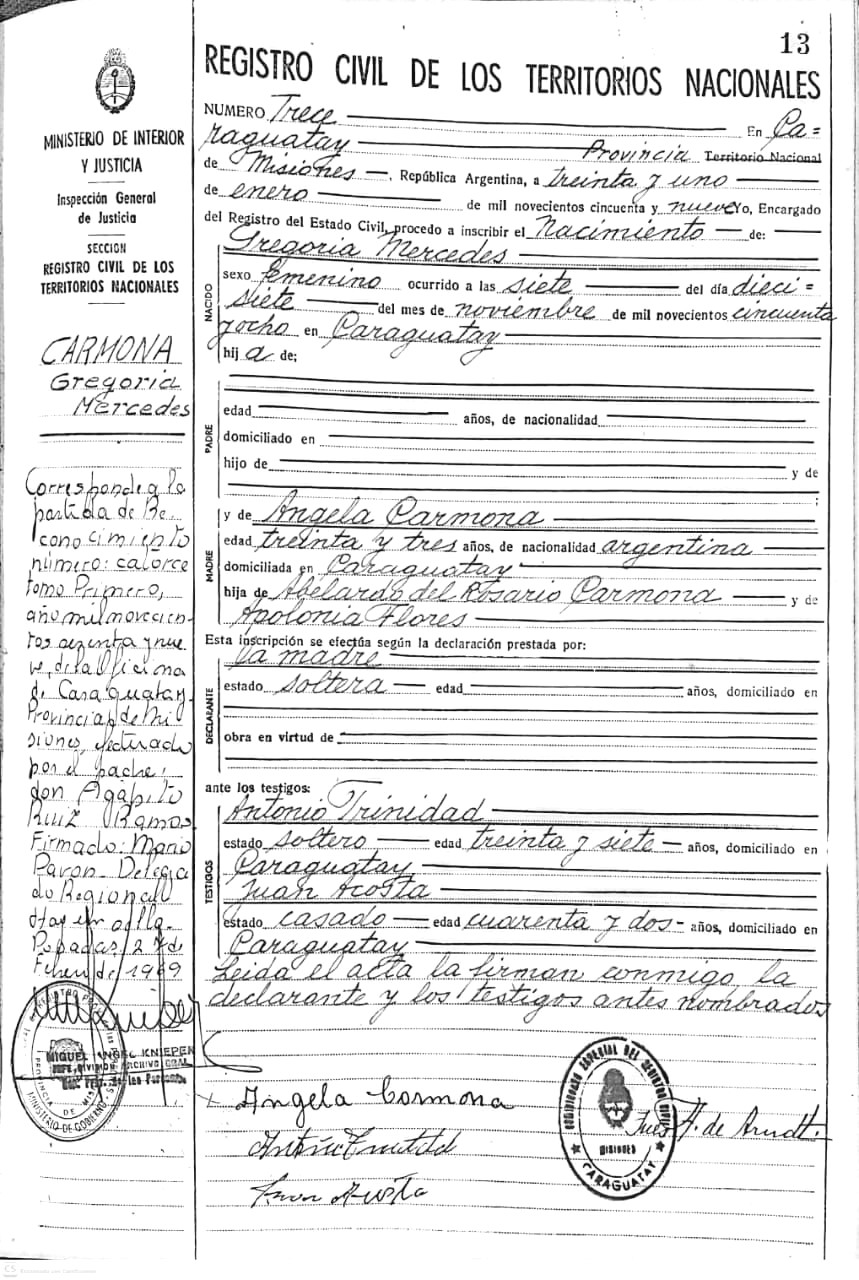 13
REGISTRO CIVIL DE LOS TERRITORIOS NACIONALES
MINISTERIO DE INTERIOR
Y JUSTICIA
Inspección General
de Justicia
SECCION
REGISTRO CIVIL DE LOS
TERRITORIOS NACIONALES
CARMONA
Gregoria
Mercedes
Corresponde a la
partida de Re
conocimiento
número: catorce
tomo Primero,
año mil novecien-
tos sesenta y nue
ve, de la
de Caraguatay
Provincia de Mi
siones, efectuado
por el padre:
don Agapito
Ruiz Ramos
Firmado: Mario
Pavon. Delega
do Regional
Hay un sello.
Posadas, 27 de
de 1969
MIGUEL ANGEL KNIEPER
JEFE DIVISION ARCHIVO GRAL.
PROVINCIA DE
MINISTERIO DE GOBIERNO
NUMERO Trece En Ca=
raguatay Provincia Territorio Nacional
de Misiones, República Argentina, a treinta y uno
de enero de mil novecientos cincuenta y nueve Yo, Encargado
del Registro del Estado Civil, procedo a inscribir el Nacimiento de:
NACIDO
Gregoria Mercedes
sexo femenino ocurrido a las siete del día dieci=
siete del mes de noviembre de mil novecientos cincuenta
y ocho en Caraguatay
hija de;
PADRE
edad años, de nacionalidad
domiciliado en
hijo de y de
;
MADRE
y de Angela Carmona
edad treinta y tres años, de nacionalidad argentina
domiciliada en Caraguatay
hija de Abelardo del Rosario Carmona y de
Apolonia Flores
Esta inscripción se efectúa según la declaración prestada por:
DECLARANTE
la madre
estado soltera edad años, domiciliado en
obra en virtud de
ante los testigos:
TESTIGOS
Antonio Trinidad
estado soltero edad treinta y siete años, domiciliado en
Caraguatay
Juan Acosta
estado casado edad cuarenta y dos- años, domiciliado en
Caraguatay
Leida el acta la firman conmigo la
declarante y los testigos antes nombrados
Angela Carmona
COMISIONADO ESPECIAL DEL REGISTRO CIVIL
MISIONES
CARAGUATAY
H. de Arndt.
CS